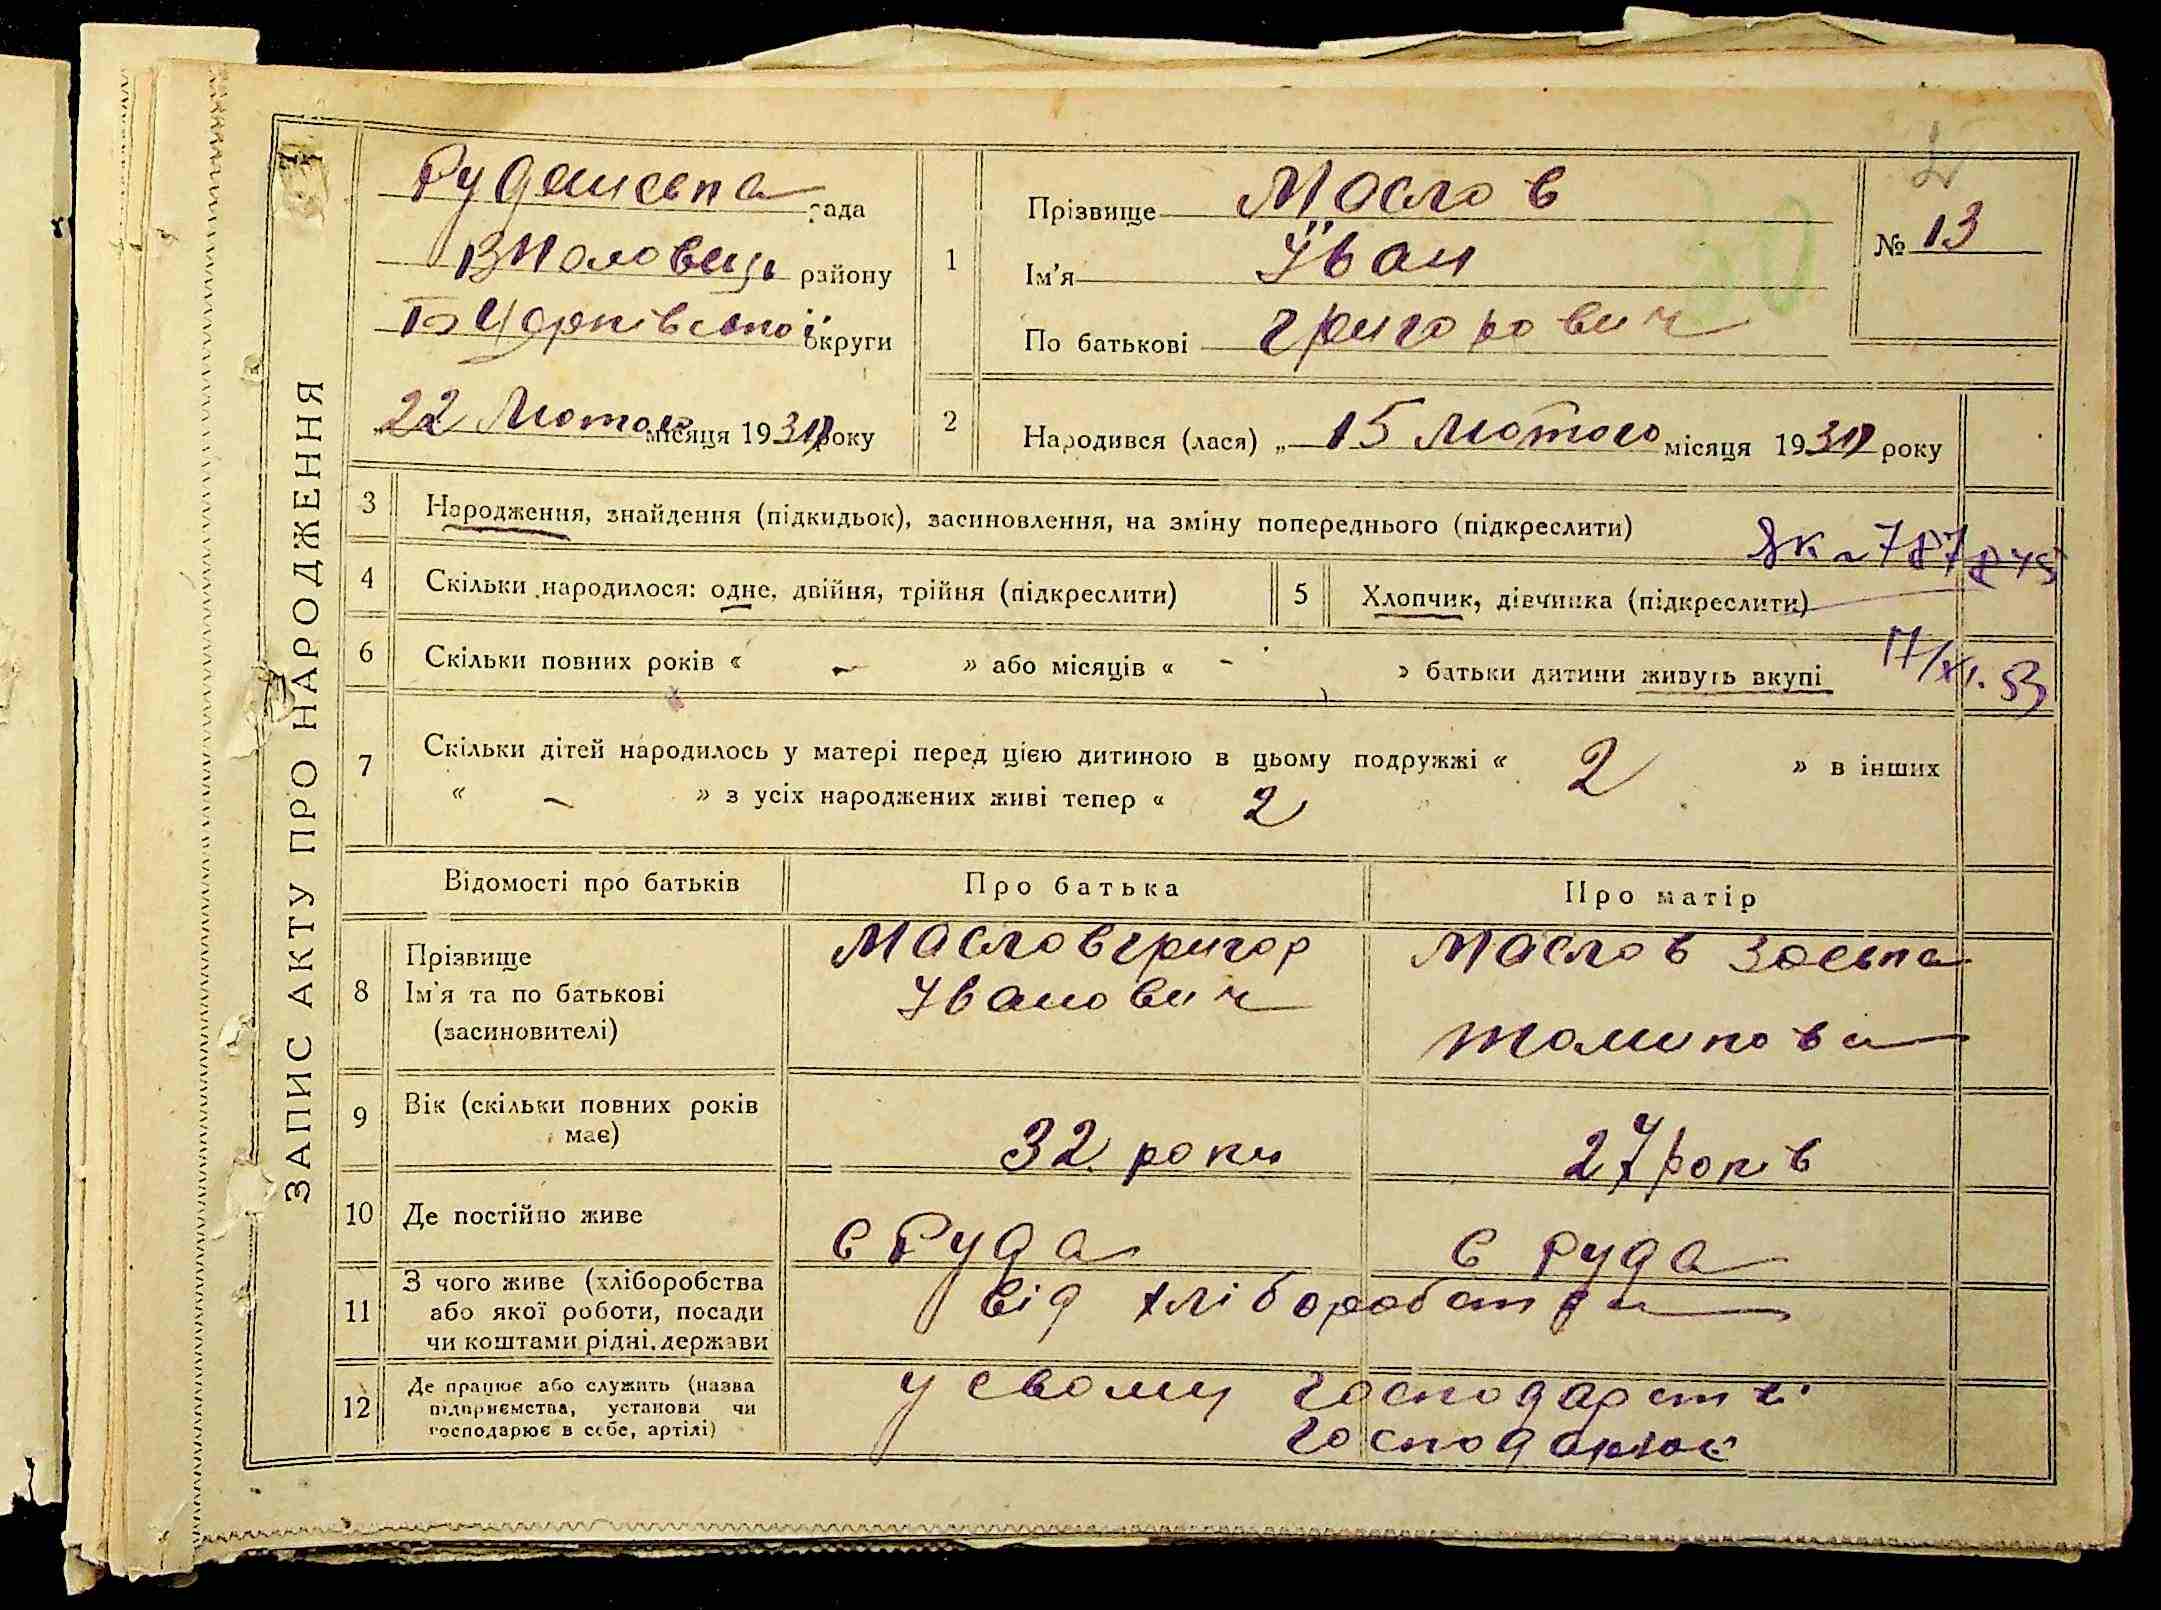 ЗАПИС АКТУ ПРО НАРОДЖЕННЯ
Руданська рада
району
БЦерківської округи
22 Лютого місяця 1930 року
1
Прізвище Маслов
Ім'я Іван
По батькові Григорович
№ 13
2
Народився (лася) „ 15 Лютого місяця 1930 року
3 Народження, знайдення (підкидьок), засиновлення, на зміну попереднього (підкреслити)
4 Скільки народилося: одне, двійня, трійня (підкреслити)
5 Хлопчик, дівчинка (підкреслити)
6 Скільки повних років « – » або місяців « – » батьки дитини живуть вкупі
17/XI. 53
7 Скільки дітей народилось у матері перед цією дитиною в цьому подружжі « 2 » в інших
« – » з усіх народжених живі тепер « 2
Відомості про батьків Про батька Про матір
8 Прізвище
Ім'я та по батькові
(засиновителі)
Маслов Григор
Іванович
Маслов
9 Вік (скільки повних років
має)
32 роки
27 років
10 Де постійно живе
с Руда
с Руда
11 З чого живе (хліборобства
або якої роботи, посади
чи коштами рідні, держави
від хліборобства
12 Де працює або служить (назва
підприємства, установи чи
господарює в себе, артілі)
у свому господарстві
господарює